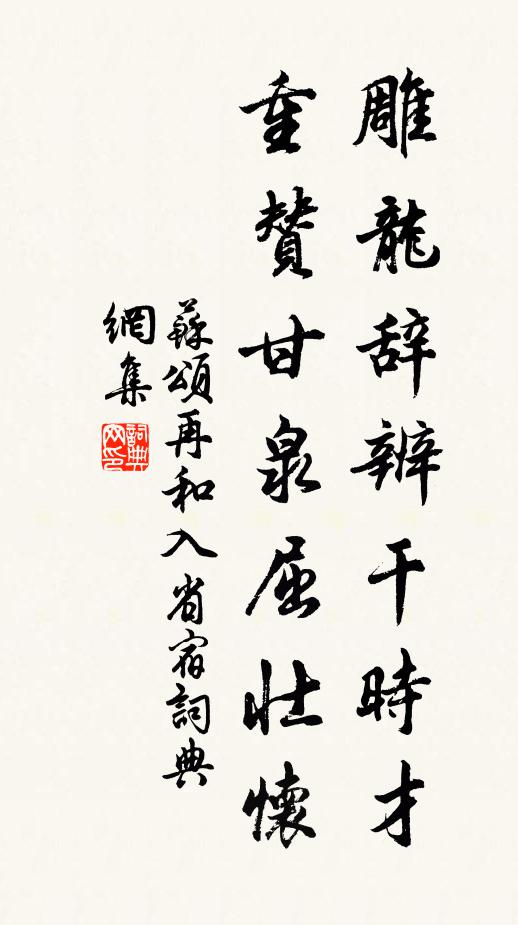 雕龍辞辨干時才
重贊甘泉屈壯懷
蘇頌再和入省宿詞典
網集
詞典
网印